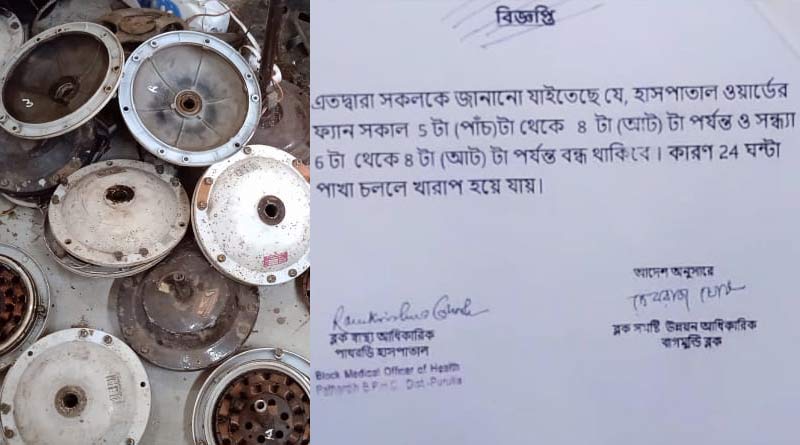 বিজ্ঞপ্তি
এতদ্বারা সকলকে জানানো যাইতেছে যে, হাসপাতাল ওয়ার্ডের
ফ্যান সকাল 5 টা (পাঁচ)টা থেকে 8 টা (আট) টা পর্যন্ত ও সন্ধ্যা
6 টা থেকে 8 টা (আট) টা পর্যন্ত বন্ধ থাকিবে। কারণ 24 ঘন্টা
পাখা চললে খারাপ হয়ে যায়।
আদেশ অনুসারে
ব্লক স্বাস্থ্য আধিকারিক
পাথরডি হাসপাতাল
Block Medical Officer of Health
Pathardih B.P.H.C. Dist.-Purulia
ব্লক সমষ্টি উন্নয়ন আধিকারিক
বাগমুন্ডি ব্লক